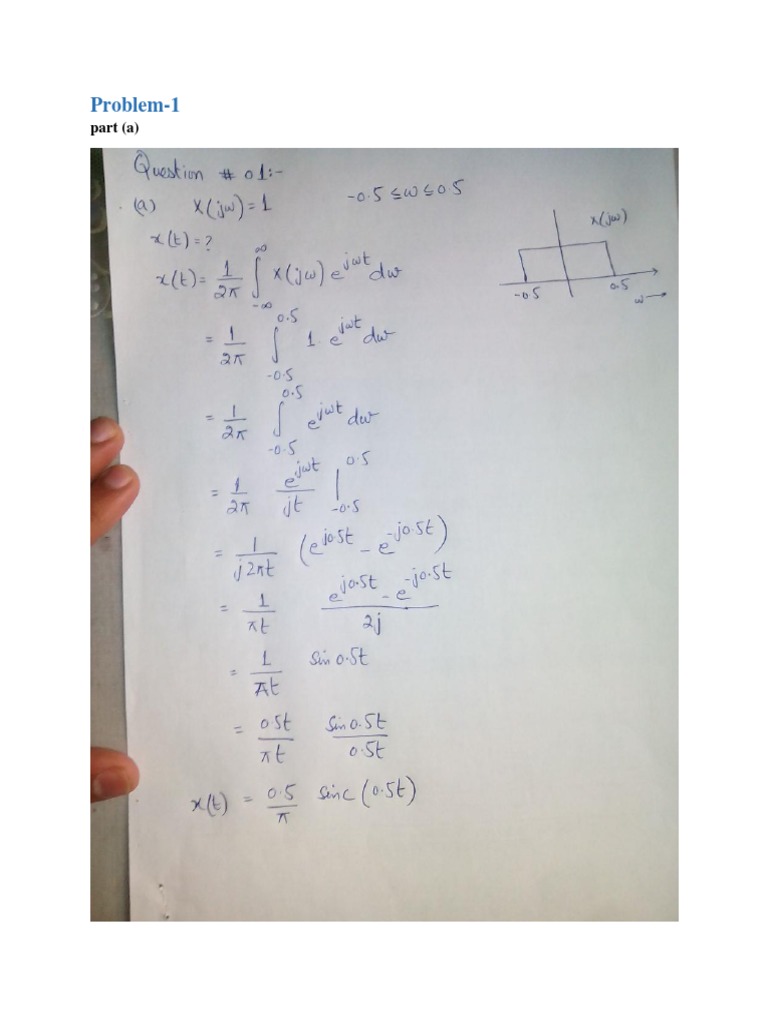 Problem-1
part (a)
Question # 01:-
(a) X(jω)=1 -0.5 ≤ω≤0.5
x(t)=?
x(jω)
-0.5 0.5
ω→
x(t)= 1/2π ∫_{-∞}^{∞} X(jω) e^{jωt} dω
= 1/2π ∫_{-0.5}^{0.5} 1. e^{jωt} dω
= 1/2π ∫_{-0.5}^{0.5} e^{jωt} dω
= 1/2π e^{jωt}/jt |_{-0.5}^{0.5}
= 1/j2πt (e^{j0.5t} - e^{-j0.5t})
= 1/πt (e^{j0.5t} - e^{-j0.5t})/2j
= 1/πt Sin 0.5t
= 0.5t/πt Sin0.5t/0.5t
x(t) = 0.5/π sinc(0.5t)